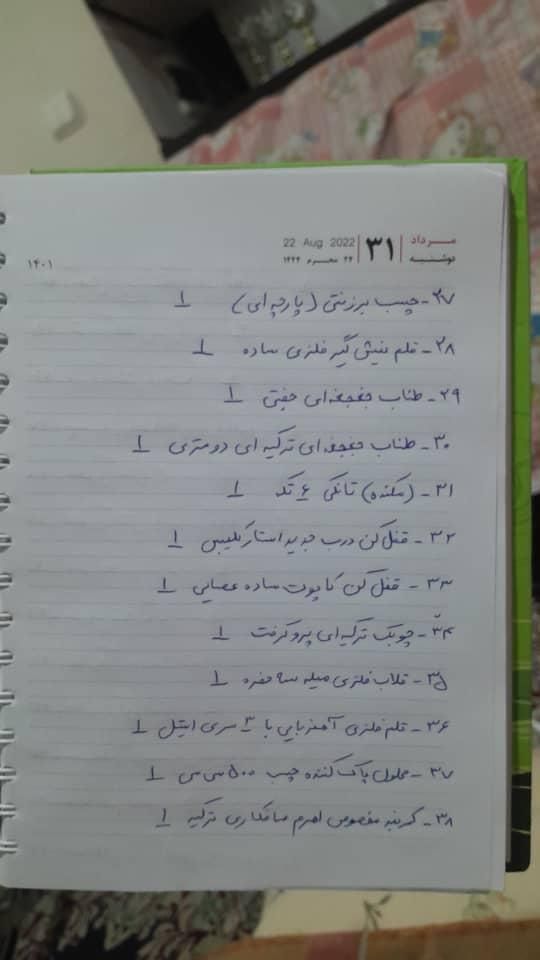 مرداد ۳۱ 22 Aug 2022
دوشنبه ۲۴ محرم ۱۴۴۴ ۱۴۰۱
۲۷- چسب برزنتی (پارچه ای) ۱
۲۸- قلم نیش گیر فلزی ساده ۱
۲۹- طناب جغجغه ای جفتی ۱
۳۰- طناب جغجغه ای ترکیه ای دو متری ۱
۳۱- (مکنده) تانکی ۶ تک ۱
۳۲- قفل کن درب جدید استار کلیپس ۱
۳۳- قفل کن کاپوت ساده عصایی ۱
۳۴- چوبک ترکیه ای پروکرفت ۱
۳۵- قلاب فلزی میله سه حفره ۱
۳۶- قلم فلزی آهنربایی با ۳ سری استیل ۱
۳۷- محلول پاک کننده چسب ۵۰۰ سی سی ۱
۳۸- کمربند مخصوص اهرم صافکاری ترکیه ۱